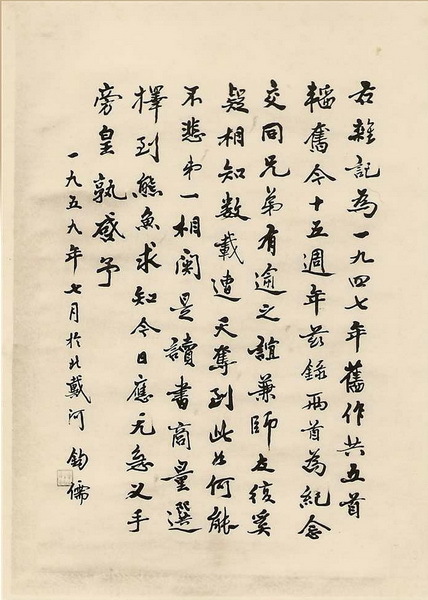 右雜記為一九四七年舊作共五首
韜奮今十五週年茲錄兩首為紀念
交同兄弟有逾之誼兼師友復奚
疑相知數載遭天奪到此如何能
不悲弟一相関是讀書商量選
擇到熊魚求知今日應无急叉手
旁皇孰感予
一九五九年七月於北戴河 鈞儒